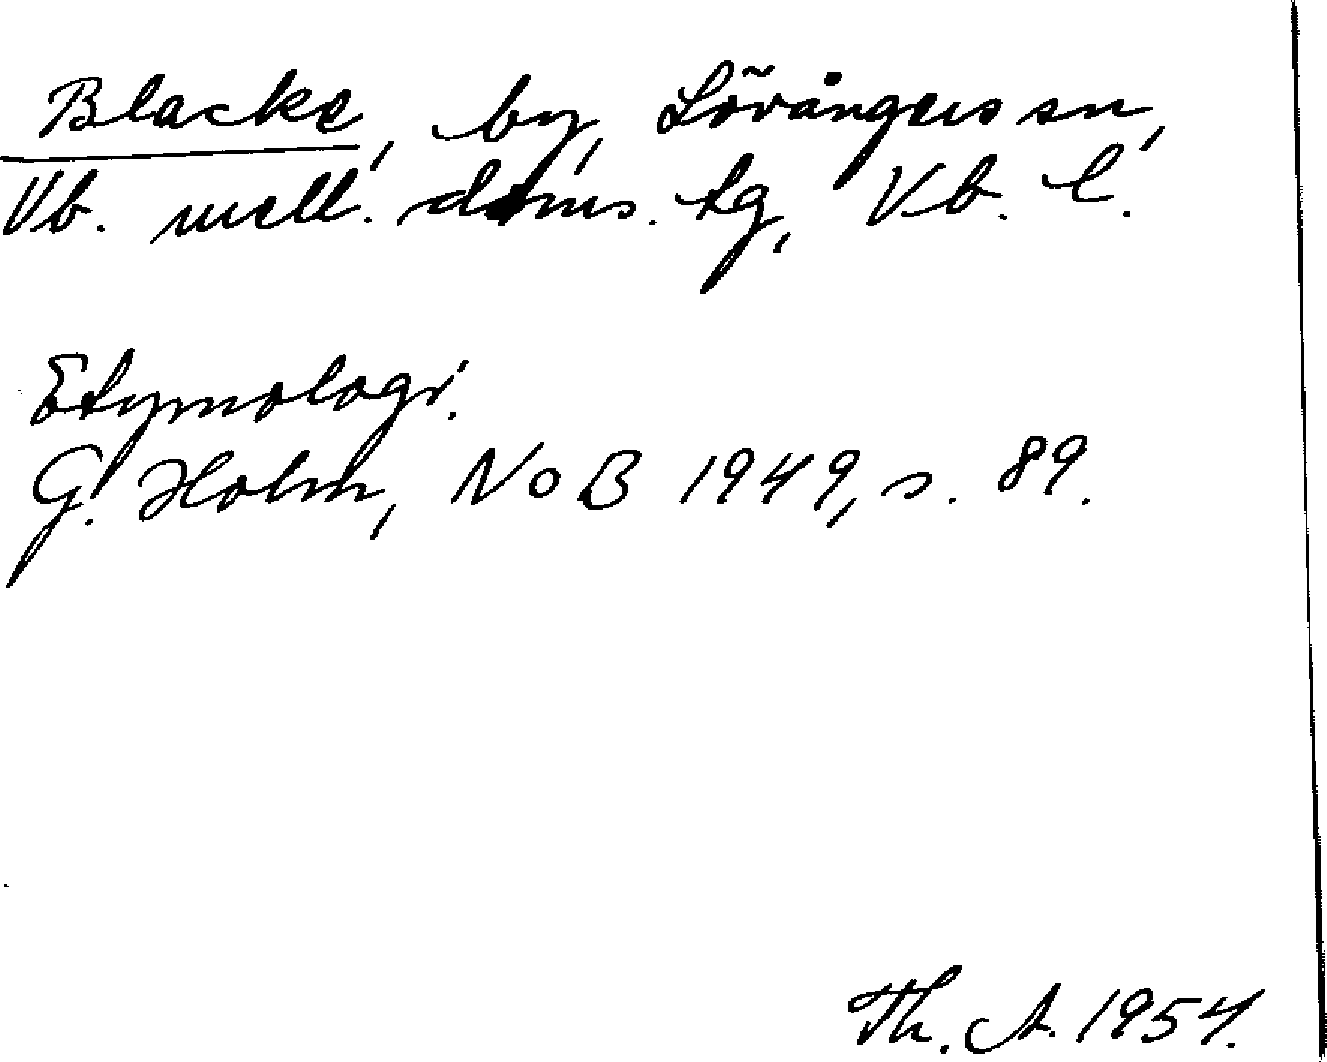 Blacke, by, Lövångers sn,
Vb. mell. doms. tg, Vb. l.
Etymologi.
G. Holm, NoB 1949, s. 89.
Th. A. 1954.